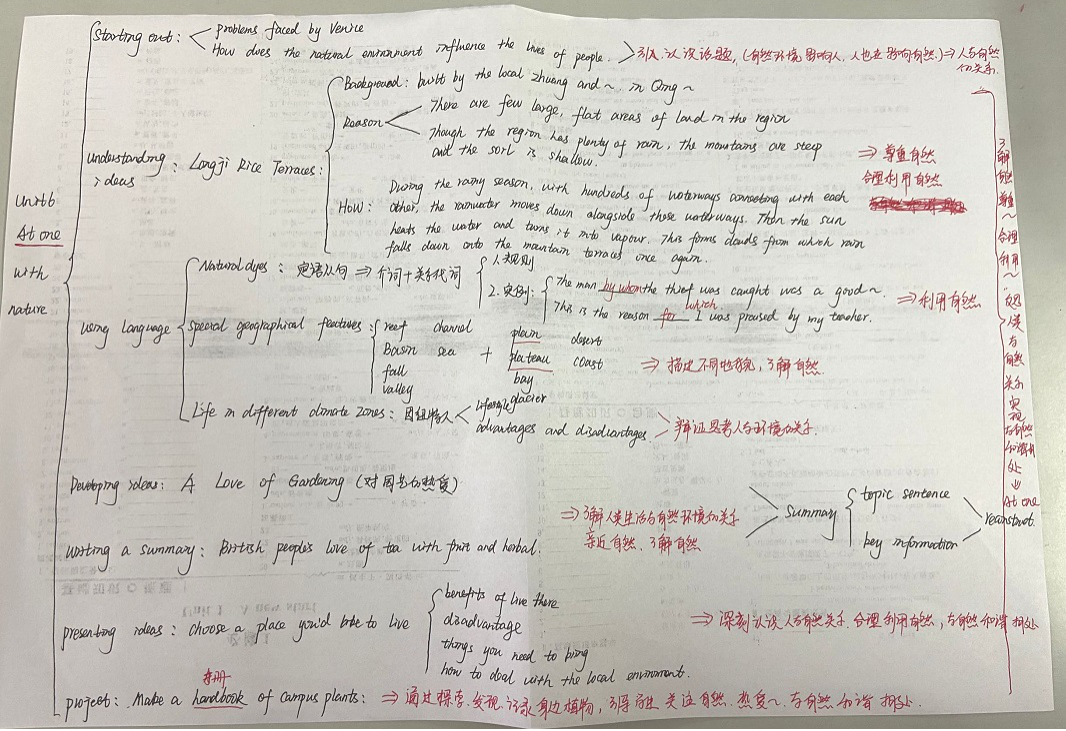 Starting out: problems faced by Venice
How does the natural environment influence the lives of people. 引入, 认识话题, (自然环境影响人, 人也在影响自然.) ⇒ 人与自然
的关系.
Background: built by the local zhuang and ~ in Qing ~
Reason
There are few large, flat areas of land in the region
Though the region has plenty of rain, the mountains are steep
and the soil is shallow.
understanding ideas: Longji Rice Terraces:
⇒ 尊重自然
合理利用自然
How: During the rainy season, with hundreds of waterways connecting with each
other, the rainwater moves down alongside those waterways. Then the sun
heats the water and turns it into vapour. This forms clouds from which rain
falls down onto the mountain terraces once again.
Unit6
At one
with
nature
using language
Natural dyes: 定语从句 ⇒ 介词+关系代词
1.规则
2.实例:
The man by whom the thief was caught was a good ~
which
This is the reason for I was praised by my teacher.
⇒ 利用自然
Special geographical features:
reef channel
Basin sea
fall
valley
+
plain desert
plateau coast
bay
glacier
⇒ 描述不同地貌, 了解自然.
Life in different climate zones:
lifestyle
advantages and disadvantages
辩证思考人与环境的关系.
Developing ideas: A Love of Gardening (对园艺的热爱)
⇒ 了解人类生活与自然环境的关系
亲近自然, 了解自然
Summary
topic sentence
key information
reconstruct.
writing a summary: British people's love of tea with fruit and herbal.
presenting ideas: choose a place you'd like to live
benefits of live there
disadvantage
things you need to bring
how to deal with the local environment.
⇒ 深刻认识人与自然关系, 合理利用自然, 与自然和谐相处
手册
project: Make a handbook of campus plants: ⇒ 通过探寻, 发现, 记录身边植物, 引导学生关注自然, 热爱~, 与自然和谐相处.
了解自然
尊重~
合理利用~
人类与自然关系
实现与自然和谐相处
↓
At one